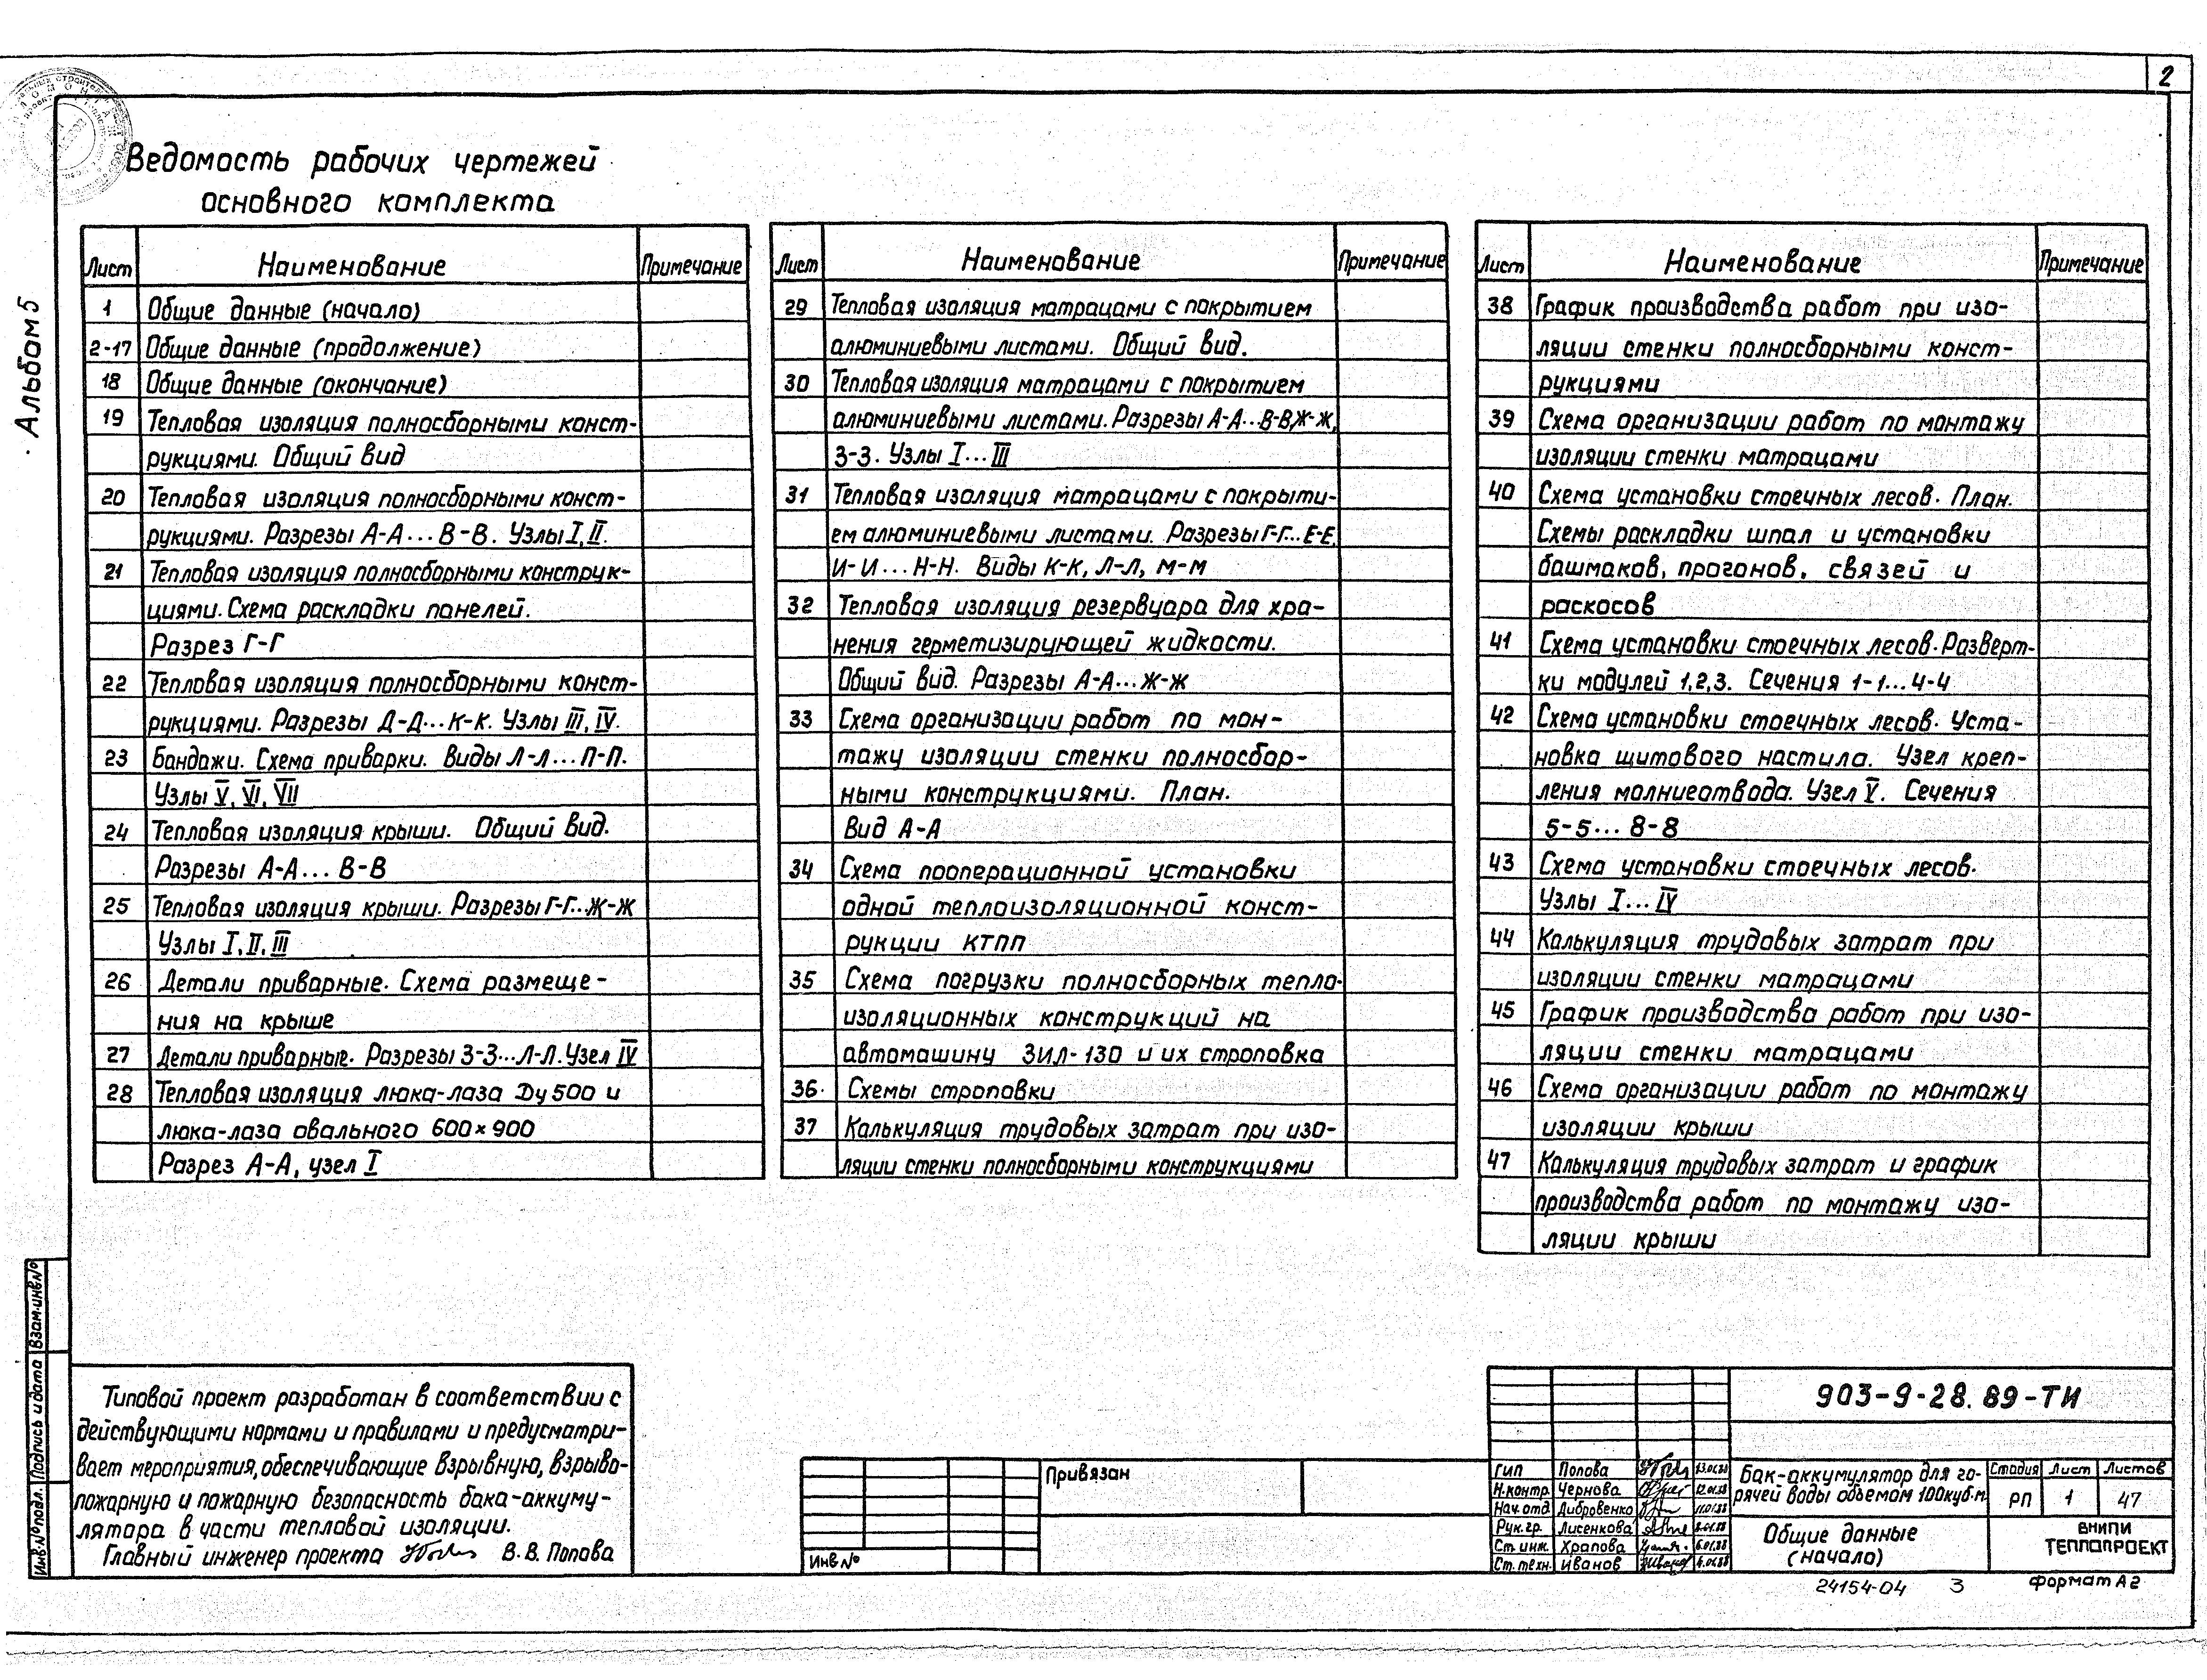 2
Альбом 5
Ведомость рабочих чертежей
основного комплекта
Лист Наименование Примечание
1 Общие данные (начало)
2-17 Общие данные (продолжение)
18 Общие данные (окончание)
19 Тепловая изоляция полносборными конст-
рукциями. Общий вид
20 Тепловая изоляция полносборными конст-
рукциями. Разрезы А-А...В-В. Узлы I, II.
21 Тепловая изоляция полносборными конструк-
циями. Схема раскладки панелей.
Разрез Г-Г
22 Тепловая изоляция полносборными конст-
рукциями. Разрезы Д-Д...К-К. Узлы III, IV.
23 Бандажи. Схема приварки. Виды Л-Л...П-П.
Узлы V, VI, VII
24 Тепловая изоляция крыши. Общий вид.
Разрезы А-А...В-В
25 Тепловая изоляция крыши. Разрезы Г-Г...Ж-Ж
Узлы I, II, III
26 Детали приварные. Схема размеще-
ния на крыше
27 Детали приварные. Разрезы З-З...Л-Л. Узел IV
28 Тепловая изоляция люка-лаза Ду 500 и
люка-лаза овального 600×900
Разрез А-А, узел I
Лист Наименование Примечание
29 Тепловая изоляция матрацами с покрытием
алюминиевыми листами. Общий вид.
30 Тепловая изоляция матрацами с покрытием
алюминиевыми листами. Разрезы А-А...В-В, Ж-Ж,
З-З. Узлы I...III
31 Тепловая изоляция матрацами с покрыти-
ем алюминиевыми листами. Разрезы Г-Г...Е-Е,
И-И...Н-Н. Виды К-К, Л-Л, М-М
32 Тепловая изоляция резервуара для хра-
нения герметизирующей жидкости.
Общий вид. Разрезы А-А...Ж-Ж
33 Схема организации работ по мон-
тажу изоляции стенки полносбор-
ными конструкциями. План.
Вид А-А
34 Схема пооперационной установки
одной теплоизоляционной конст-
рукции КТПП
35 Схема погрузки полносборных тепло-
изоляционных конструкций на
автомашину ЗИЛ-130 и их строповка
36 Схемы строповки
37 Калькуляция трудовых затрат при изо-
ляции стенки полносборными конструкциями
Лист Наименование Примечание
38 График производства работ при изо-
ляции стенки полносборными конст-
рукциями
39 Схема организации работ по монтажу
изоляции стенки матрацами
40 Схема установки стоечных лесов. План.
Схемы раскладки шпал и установки
башмаков, прогонов, связей и
раскосов
41 Схема установки стоечных лесов. Разверт-
ки модулей 1,2,3. Сечения 1-1...4-4
42 Схема установки стоечных лесов. Уста-
новка щитового настила. Узел креп-
ления молниеотвода. Узел V. Сечения
5-5...8-8
43 Схема установки стоечных лесов.
Узлы I...IV
44 Калькуляция трудовых затрат при
изоляции стенки матрацами
45 График производства работ при изо-
ляции стенки матрацами
46 Схема организации работ по монтажу
изоляции крыши
47 Калькуляция трудовых затрат и график
производства работ по монтажу изо-
ляции крыши
Инв.№ подл. Подпись и дата Взам.инв.№
Типовой проект разработан в соответствии с
действующими нормами и правилами и предусматри-
вает мероприятия, обеспечивающие взрывную, взрыво-
пожарную и пожарную безопасность бака-аккуму-
лятора в части тепловой изоляции.
Главный инженер проекта В.В. Попова
Привязан
Инв №
903-9-28.89-ТИ
ГИП Попова
Н.контр. Чернова
Нач.отд. Дибровенко
Рук.гр. Лисенкова
Ст.инж. Храпова
Ст.техн. Иванов
Бак-аккумулятор для го-
рячей воды объемом 100куб.м.
Стадия Лист Листов
РП 1 47
Общие данные
(начало)
ВНИПИ
ТЕПЛОПРОЕКТ
24154-04 3 Формат А2